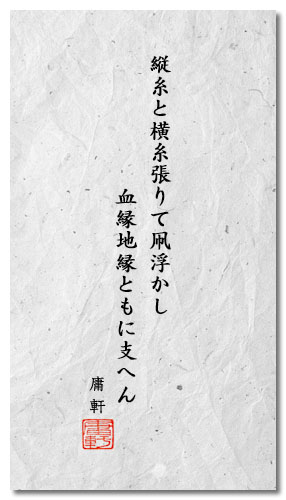 縦糸と横糸張りて凧浮かし
血縁地縁ともに支へん
庸軒
庸軒